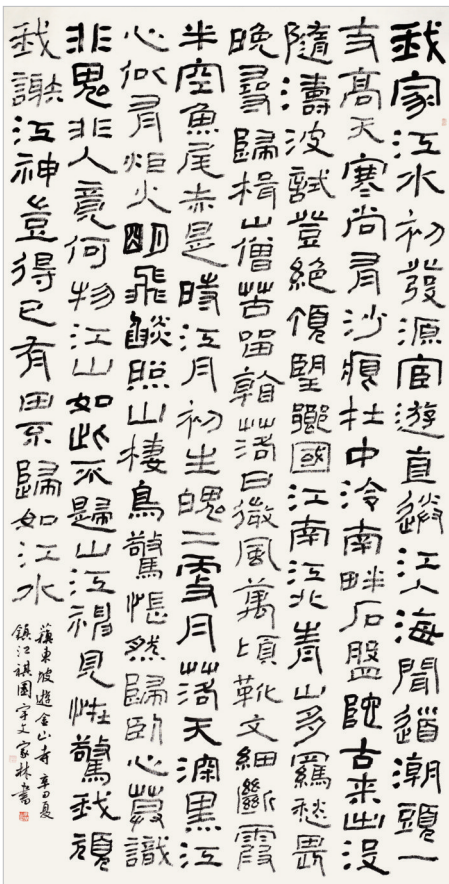 我家江水初發源宦遊直送江入海聞道潮頭一
丈高天寒尚有沙痕在中泠南畔石盤陀古來出沒
隨濤波試登絕頂望鄉國江南江北青山多羈愁畏
晚尋歸楫山僧苦留看落日微風萬頃靴文細斷霞
半空魚尾赤是時江月初生魄二更月落天深黑江
心似有炬火明飛焰照山棲鳥驚悵然歸臥心莫識
非鬼非人竟何物江山如此不歸山江神見怪驚我頑
我謝江神豈得已有田不歸如江水
蘇東坡遊金山寺 辛丑夏
鎮江祺園宇文家林書